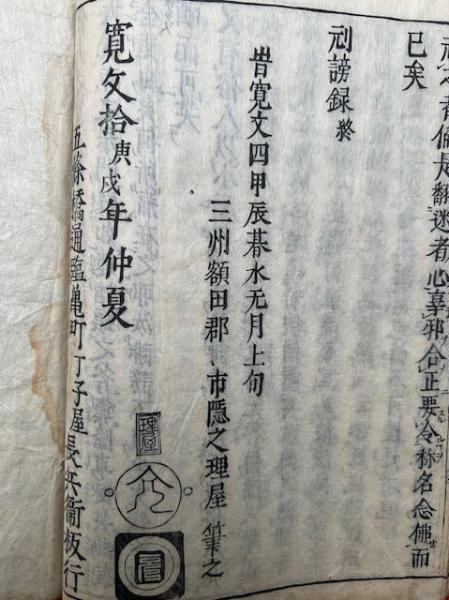 者偏是翻迷者心辜邪合正要令称名念佛而
已矣
刓謗録終
旹寛文四甲辰暮水无月上旬
三州額田郡 市隠之理屋筆之
寛文拾庚戌年仲夏
五條橋通塩亀町丁子屋長兵衛板行